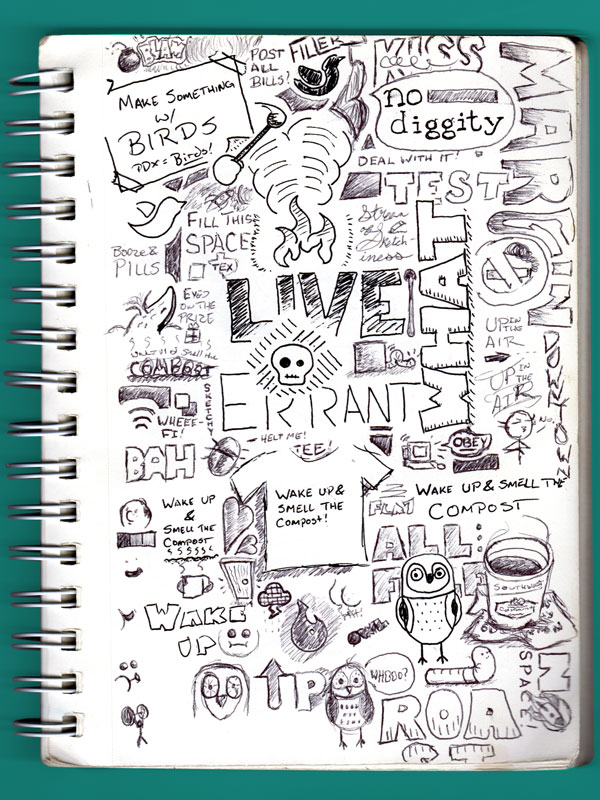 BLAM
POST
ALL
BILLS?
FILLER
KISS
MAKE SOMETHING
W/
BIRDS
PDX = Birds!
no
diggity
DEAL WITH IT!
TEST
MARGIN
FILL THIS
SPACE
TEX
Stream
of
Sketch-
iness
BOOZE &
PILLS
LIVE
WHAT
EYES
ON THE
PRIZE
UP IN
THE
AIR
UP IN
THE
AIR
COMPOST
ERRANT
SKETCH
WHEEE-
FI!
HELP ME!
TEE!
NO.
OBEY
BAH
WAKE UP
&
SMELL THE
COMPOST
WAKE UP &
SMELL THE
COMPOST!
WAKE UP & SMELL THE
COMPOST
FLAT
ALL:
SOUTH
WAKE
UP
UP
WHOOO?
ROA
NO
SPACE!